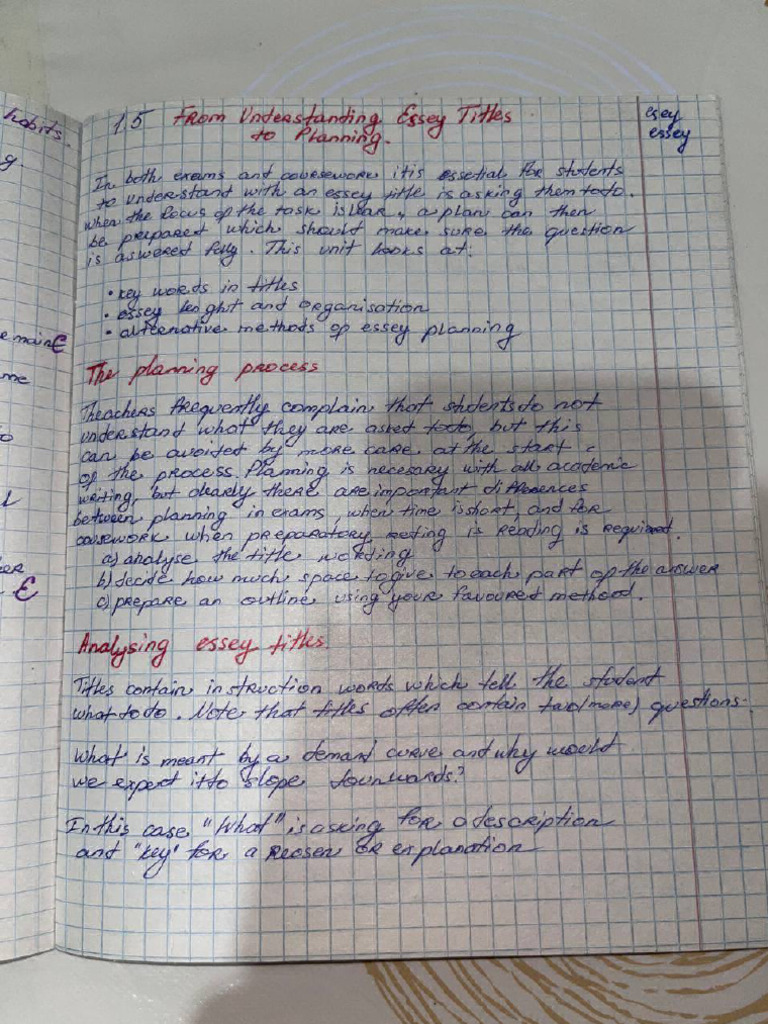 habits.
g.
e main E
me
to
l
E
1.5 From Understanding Essey Titles
to Planning.
esey
essey
In both exams and coursework itis essetial for students
to understand with an essey title is asking them todo.
when the focus of the task is clear, a plan can then
be prepared which should make sure the question
is aswered fully. This unit looks at:
• key words in titles
• essey lenght and organisation
• alternative methods of essey planning
The planning process
Theachers frequently complain that students do not
understand what they are asked todo, but this
can be avoided by more care at the start
of the process Planning is necesary with all academic
writing, but clearly there are important differences
between planning in exams, when time is short, and for
cousework when preparatory is reading is required.
a) analyse the title wording
b) decide how much space to give to each part of the answer
c) prepare an outline using your favoured methood.
Analysing essey titles.
Titles contain instruction words which tell the student
what to do. Note that titles often contain two(more) questions.
What is meant by a demand curve and why would
we expert it to slope downwards?
In this case "What" is asking for a description
and "key" for a reosen or explanation